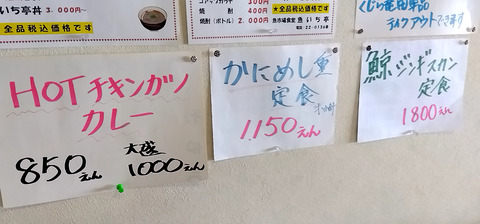 3.000円〜
いち亭丼
全品税込価格です
300円
焼酎 400円
焼酎(ボトル) 2.000円
★全品税込価格です★
魚市場食堂 魚いち亭
テイクアウトできます
HOTチキンカツ
カレー
850えん
大盛
1000えん
かにめし
定食
1.150えん
鯨ジンギスカン
定食
1800えん